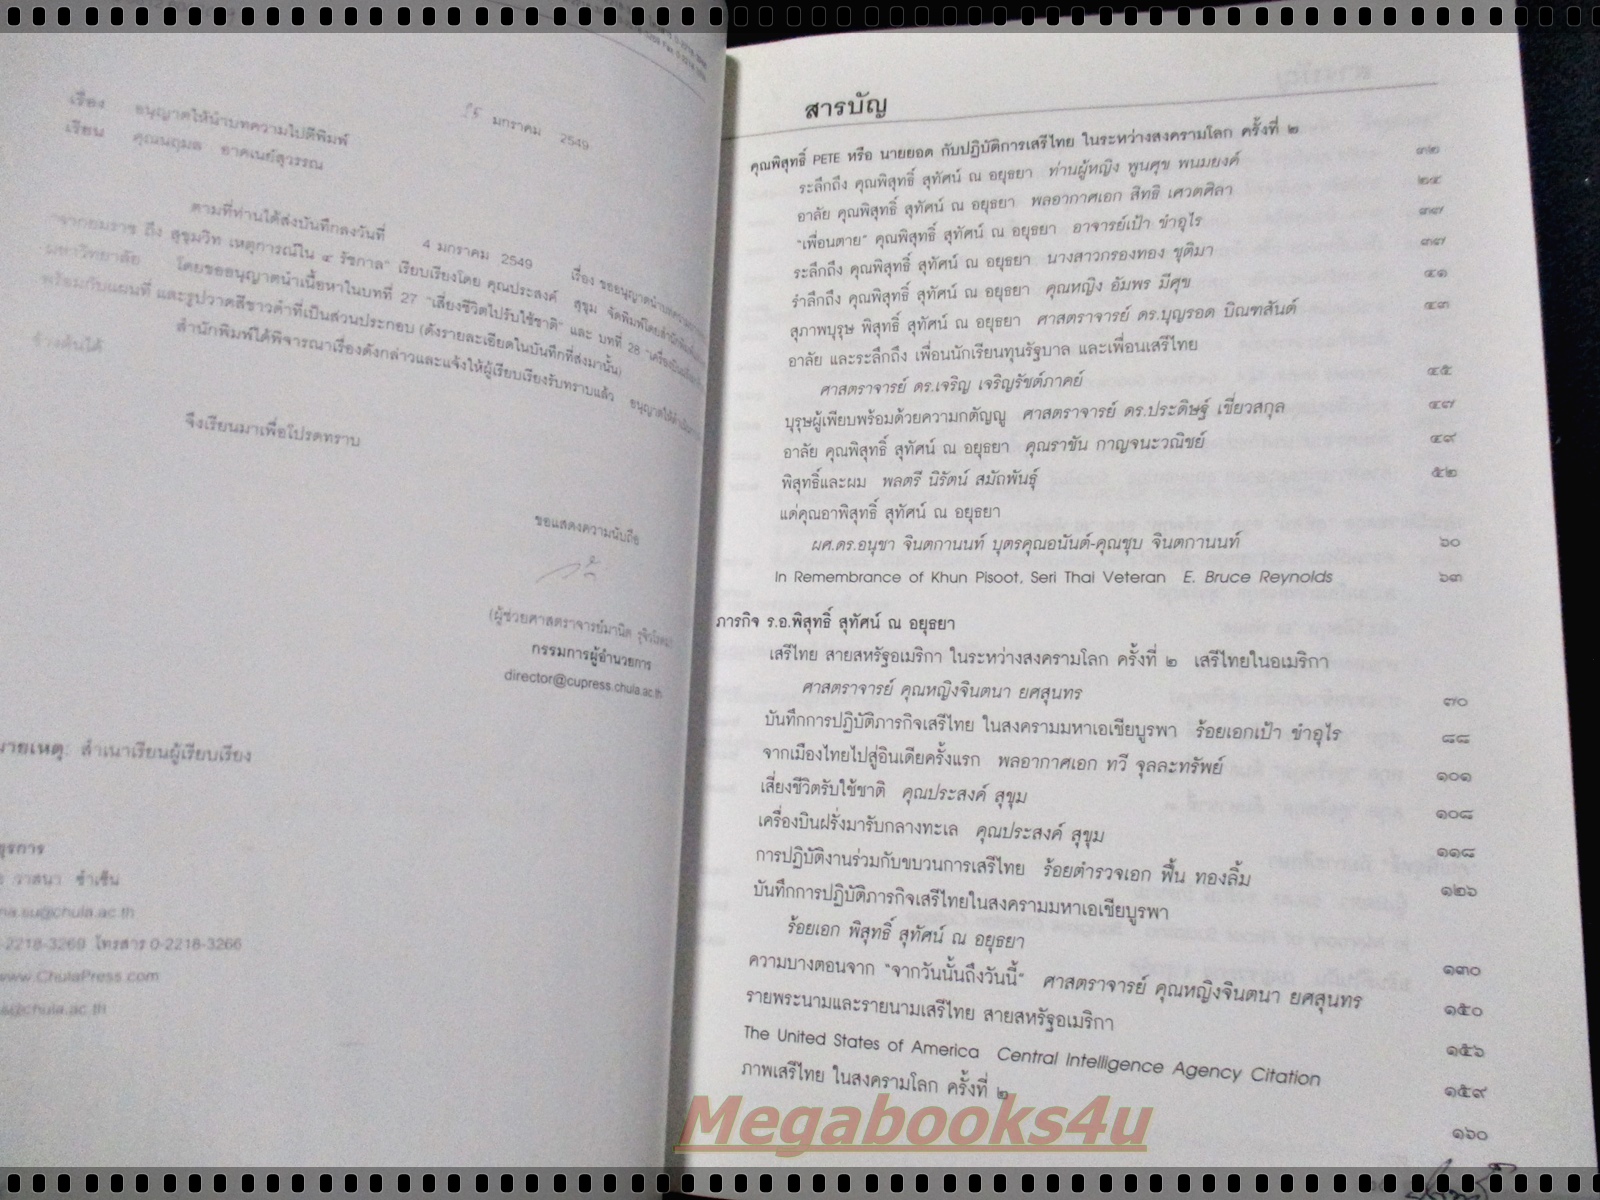 ๒๕ มกราคม 2549
เรื่อง อนุญาตให้นำบทความไปตีพิมพ์
เรียน คุณนฤมล อาคเนย์สุวรรณ
ตามที่ท่านได้ส่งบันทึกลงวันที่ 4 มกราคม 2549 เรื่อง ขออนุญาตนำบทความ
"จากยมราช ถึง สุขุมวิท เหตุการณ์ใน ๔ รัชกาล" เรียบเรียงโดย คุณประสงค์ สุขุม จัดพิมพ์โดยสำนักพิมพ์
มหาวิทยาลัย โดยขออนุญาตนำเนื้อหาในบทที่ 27 "เสี่ยงชีวิตไปรับใช้ชาติ" และ บทที่ 28
พร้อมกับแผนที่ และรูปวาดสีขาวดำที่เป็นส่วนประกอบ (ดังรายละเอียดในบันทึกที่ส่งมานั้น)
สำนักพิมพ์ได้พิจารณาเรื่องดังกล่าวและแจ้งให้ผู้เรียบเรียงรับทราบแล้ว
ข้างต้นได้
จึงเรียนมาเพื่อโปรดทราบ
ขอแสดงความนับถือ
(ผู้ช่วยศาสตราจารย์มานิต
กรรมการผู้อำนวยการ
director@cupress.chula.ac.th
มายเหตุ: สำเนาเรียนผู้เรียบเรียง
ธุรการ
วาสนา ซำเซ็น
na.su@chula.ac.th
-2218-3269 โทรสาร 0-2218-3266
www.ChulaPress.com
@chula.ac.th
สารบัญ
คุณพิสุทธิ์ PETE หรือ นายยอด กับปฏิบัติการเสรีไทย ในระหว่างสงครามโลก ครั้งที่ ๒
ระลึกถึง คุณพิสุทธิ์ สุทัศน์ ณ อยุธยา ท่านผู้หญิง พูนศุข พนมยงค์ ๓๒
อาลัย คุณพิสุทธิ์ สุทัศน์ ณ อยุธยา พลอากาศเอก สิทธิ เศวตศิลา ๒๔
"เพื่อนตาย" คุณพิสุทธิ์ สุทัศน์ ณ อยุธยา อาจารย์เป้า ขำอุไร ๓๗
ระลึกถึง คุณพิสุทธิ์ สุทัศน์ ณ อยุธยา นางสาวกรองทอง ชุติมา ๓๙
รำลึกถึง คุณพิสุทธิ์ สุทัศน์ ณ อยุธยา คุณหญิง อัมพร มีศุข ๔๑
สุภาพบุรุษ พิสุทธิ์ สุทัศน์ ณ อยุธยา ศาสตราจารย์ ดร.บุญรอด บิณฑสันต์ ๔๓
อาลัย และระลึกถึง เพื่อนนักเรียนทุนรัฐบาล และเพื่อนเสรีไทย
ศาสตราจารย์ ดร.เจริญ เจริญรัชต์ภาคย์ ๔๕
บุรุษผู้เพียบพร้อมด้วยความกตัญญู ศาสตราจารย์ ดร.ประดิษฐ์ เชี่ยวสกุล ๔๗
อาลัย คุณพิสุทธิ์ สุทัศน์ ณ อยุธยา คุณราชัน กาญจนะวณิชย์ ๔๙
พิสุทธิ์และผม พลตรี นิรัตน์ สมัถพันธุ์ ๕๒
แด่คุณอาพิสุทธิ์ สุทัศน์ ณ อยุธยา
ผศ.ดร.อนุชา จินตกานนท์ บุตรคุณอนันต์-คุณชุบ จินตกานนท์ ๖๐
In Remembrance of Khun Pisoot, Seri Thai Veteran E. Bruce Reynolds ๖๓
ภารกิจ ร.อ.พิสุทธิ์ สุทัศน์ ณ อยุธยา
เสรีไทย สายสหรัฐอเมริกา ในระหว่างสงครามโลก ครั้งที่ ๒ เสรีไทยในอเมริกา
ศาสตราจารย์ คุณหญิงจินตนา ยศสุนทร ๗๐
บันทึกการปฏิบัติภารกิจเสรีไทย ในสงครามมหาเอเชียบูรพา ร้อยเอกเป้า ขำอุไร ๘๘
จากเมืองไทยไปสู่อินเดียครั้งแรก พลอากาศเอก ทวี จุลละทรัพย์ ๑๐๑
เสี่ยงชีวิตรับใช้ชาติ คุณประสงค์ สุขุม ๑๐๘
เครื่องบินฝรั่งมารับกลางทะเล คุณประสงค์ สุขุม ๑๑๘
การปฏิบัติงานร่วมกับขบวนการเสรีไทย ร้อยตำรวจเอก ฟื้น ทองลิ้ม ๑๒๖
บันทึกการปฏิบัติภารกิจเสรีไทยในสงครามมหาเอเชียบูรพา
ร้อยเอก พิสุทธิ์ สุทัศน์ ณ อยุธยา ๑๓๐
ความบางตอนจาก "จากวันนั้นถึงวันนี้" ศาสตราจารย์ คุณหญิงจินตนา ยศสุนทร ๑๕๐
รายพระนามและรายนามเสรีไทย สายสหรัฐอเมริกา ๑๕๖
The United States of America Central Intelligence Agency Citation ๑๕๙
ภาพเสรีไทย ในสงครามโลก ครั้งที่ ๒ ๑๖๐
Megabooks4u